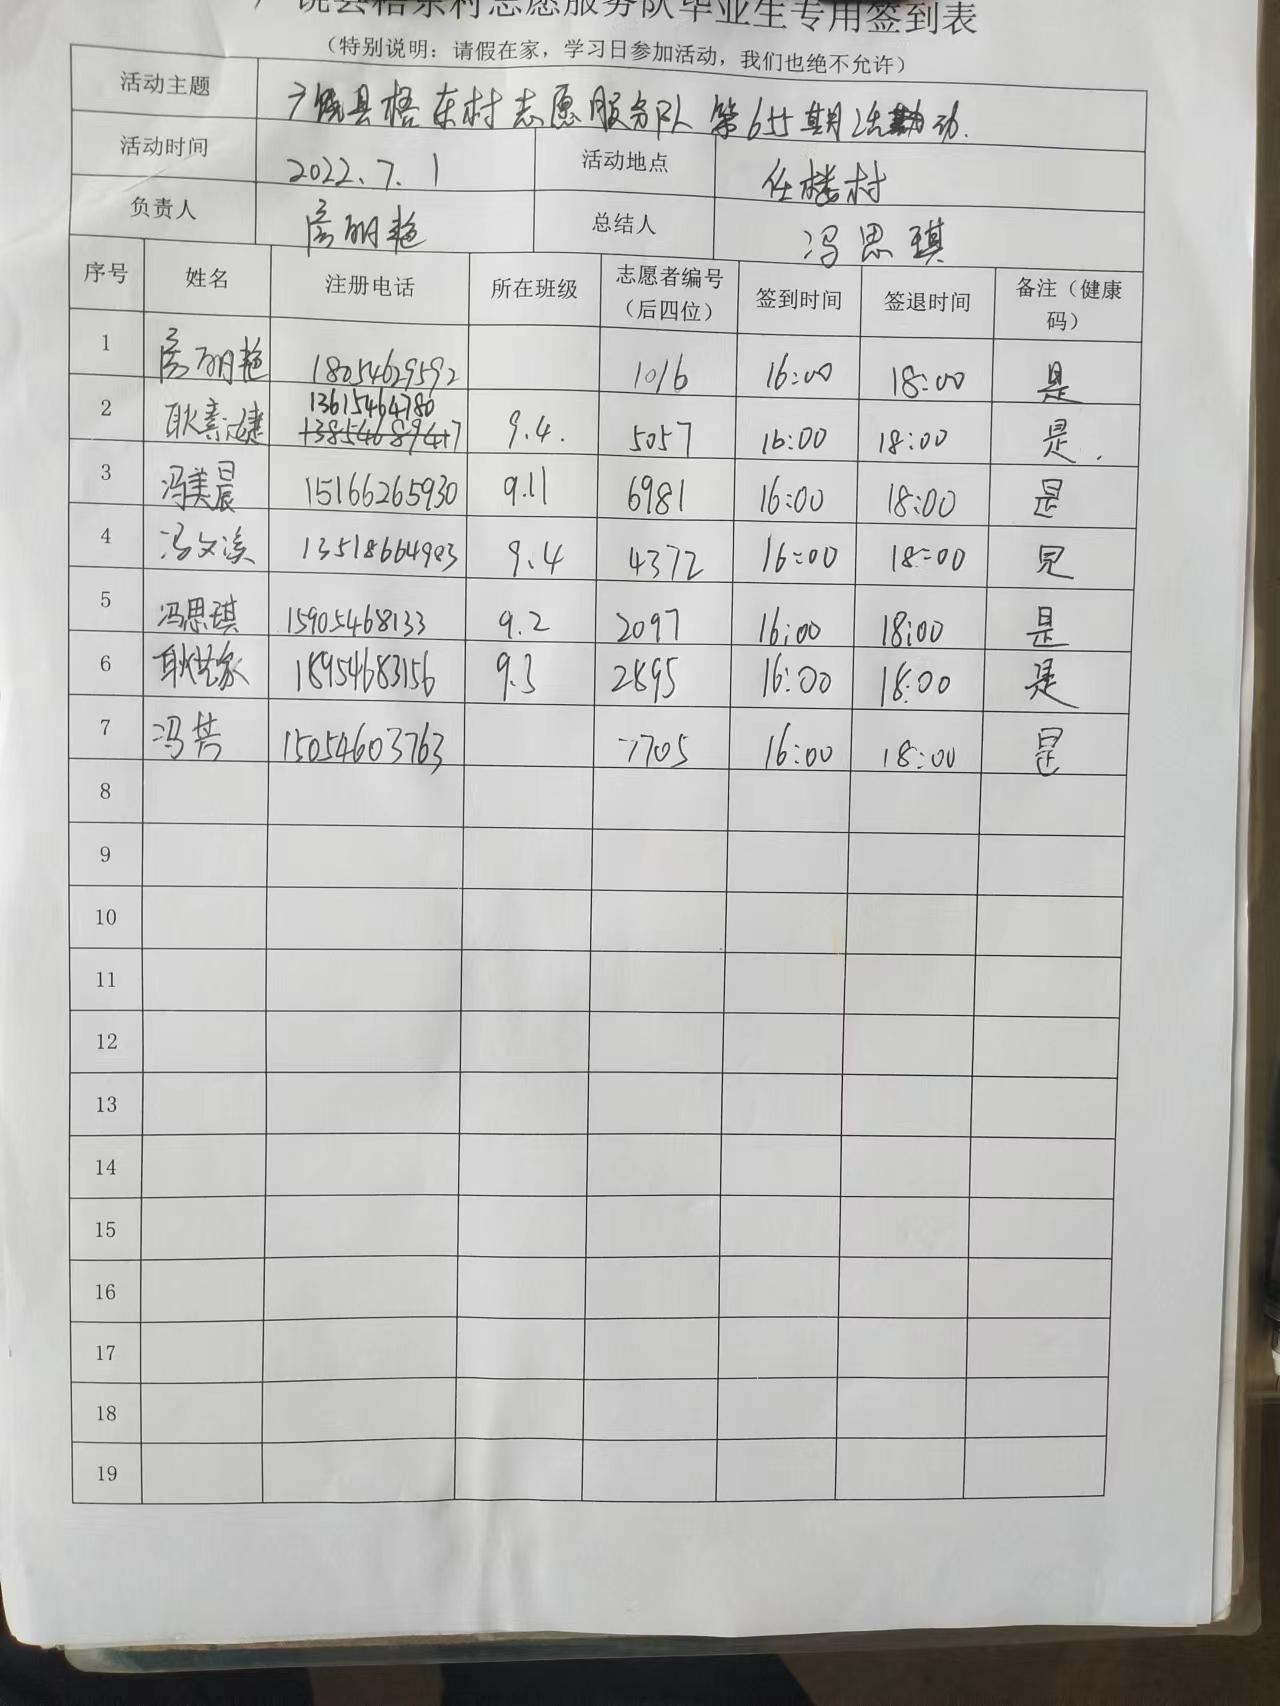 广饶县梧东村志愿服务队毕业生专用签到表
（特别说明：请假在家，学习日参加活动，我们也绝不允许）
活动主题 广饶县梧东村志愿服务队第655期活动.
活动时间 2022.7.1 活动地点 任楼村
负责人 明艳 总结人 冯思琪
序号 姓名 注册电话 所在班级 志愿者编号（后四位） 签到时间 签退时间 备注（健康码）
1 明艳 18054629592 1016 16:00 18:00 是
2 耿 13615464780 9.4. 5057 16:00 18:00 是.
3 冯美晨 15166265930 9.11 6981 16:00 18:00 是
4 冯文溪 9.4 4372 16:00 18:00 是
5 冯思琪 15905468133 9.2 2097 16:00 18:00 是
6 耿艺家 18954683156 9.3 2895 16:00 18:00 是
7 冯 15054603763 7705 16:00 18:00 是
8
9
10
11
12
13
14
15
16
17
18
19